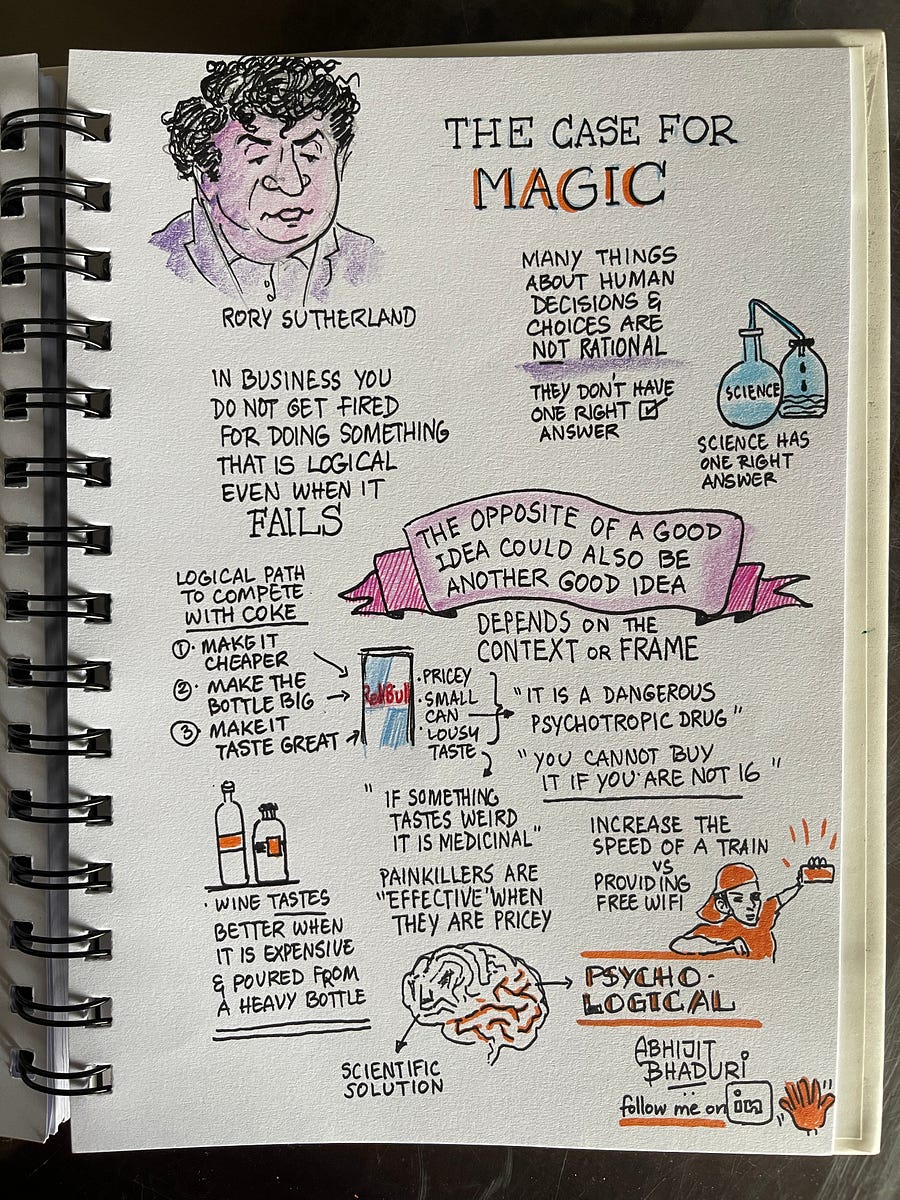 THE CASE FOR
MAGIC
RORY SUTHERLAND
MANY THINGS
ABOUT HUMAN
DECISIONS &
CHOICES ARE
NOT RATIONAL
THEY DON'T HAVE
ONE RIGHT
ANSWER
SCIENCE
SCIENCE HAS
ONE RIGHT
ANSWER
IN BUSINESS YOU
DO NOT GET FIRED
FOR DOING SOMETHING
THAT IS LOGICAL
EVEN WHEN IT
FAILS
THE OPPOSITE OF A GOOD
IDEA COULD ALSO BE
ANOTHER GOOD IDEA
DEPENDS ON THE
CONTEXT OR FRAME
LOGICAL PATH
TO COMPETE
WITH COKE
1· MAKE IT
CHEAPER
2· MAKE THE
BOTTLE BIG
3· MAKE IT
TASTE GREAT
RedBull
·PRICEY
·SMALL
CAN
·LOUSY
TASTE
"IT IS A DANGEROUS
PSYCHOTROPIC DRUG"
"YOU CANNOT BUY
IT IF YOU ARE NOT 16"
"IF SOMETHING
TASTES WEIRD
IT IS MEDICINAL"
PAINKILLERS ARE
"EFFECTIVE" WHEN
THEY ARE PRICEY
INCREASE THE
SPEED OF A TRAIN
VS
PROVIDING
FREE WIFI
· WINE TASTES
BETTER WHEN
IT IS EXPENSIVE
& POURED FROM
A HEAVY BOTTLE
SCIENTIFIC
SOLUTION
PSYCHO-
LOGICAL
ABHIJIT
BHADURI
follow me on in